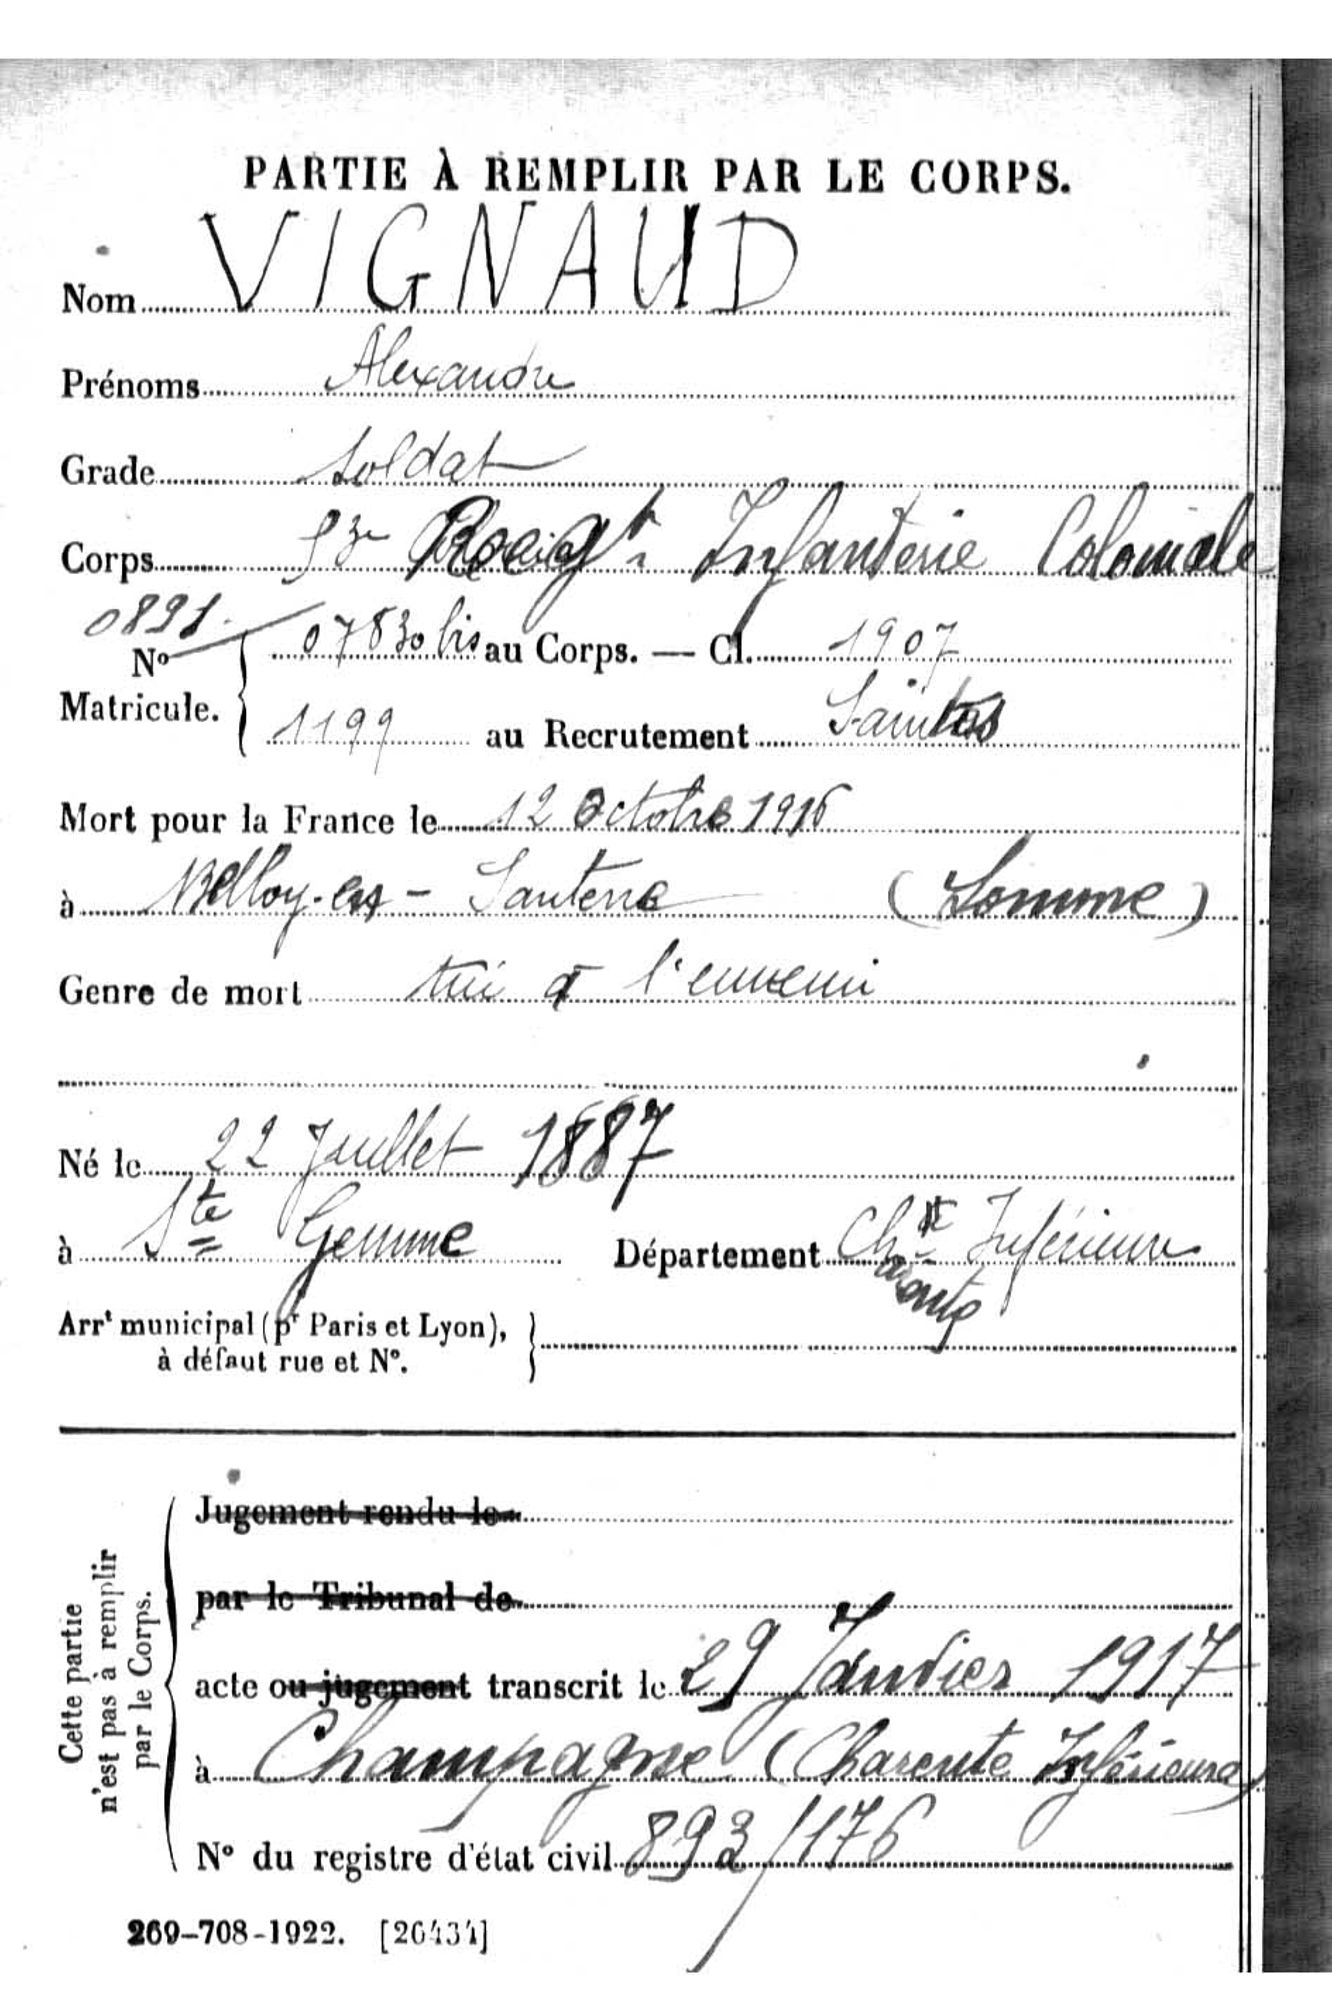 PARTIE À REMPLIR PAR LE CORPS.
Nom VIGNAUD
Prénoms Alexandre
Grade Soldat
Corps 53e Régt Infanterie Coloniale
0891.
No 07830 bis au Corps. — Cl. 1907
Matricule. 1199 au Recrutement Saintes
Mort pour la France le 12 Octobre 1916
à Belloy-en-Santerre (Somme)
Genre de mort tué à l'ennemi
Né le 22 Juillet 1887
à Ste Gemme Département Chte Inférieure
arente
Arrt municipal (pr Paris et Lyon),
à défaut rue et No.
Cette partie
n'est pas à remplir
par le Corps.
Jugement rendu le
par le Tribunal de
acte ou jugement transcrit le 29 Janvier 1917
à Champagne (Charente Inférieure)
No du registre d'état civil 893/176
269-708-1922. [26434]